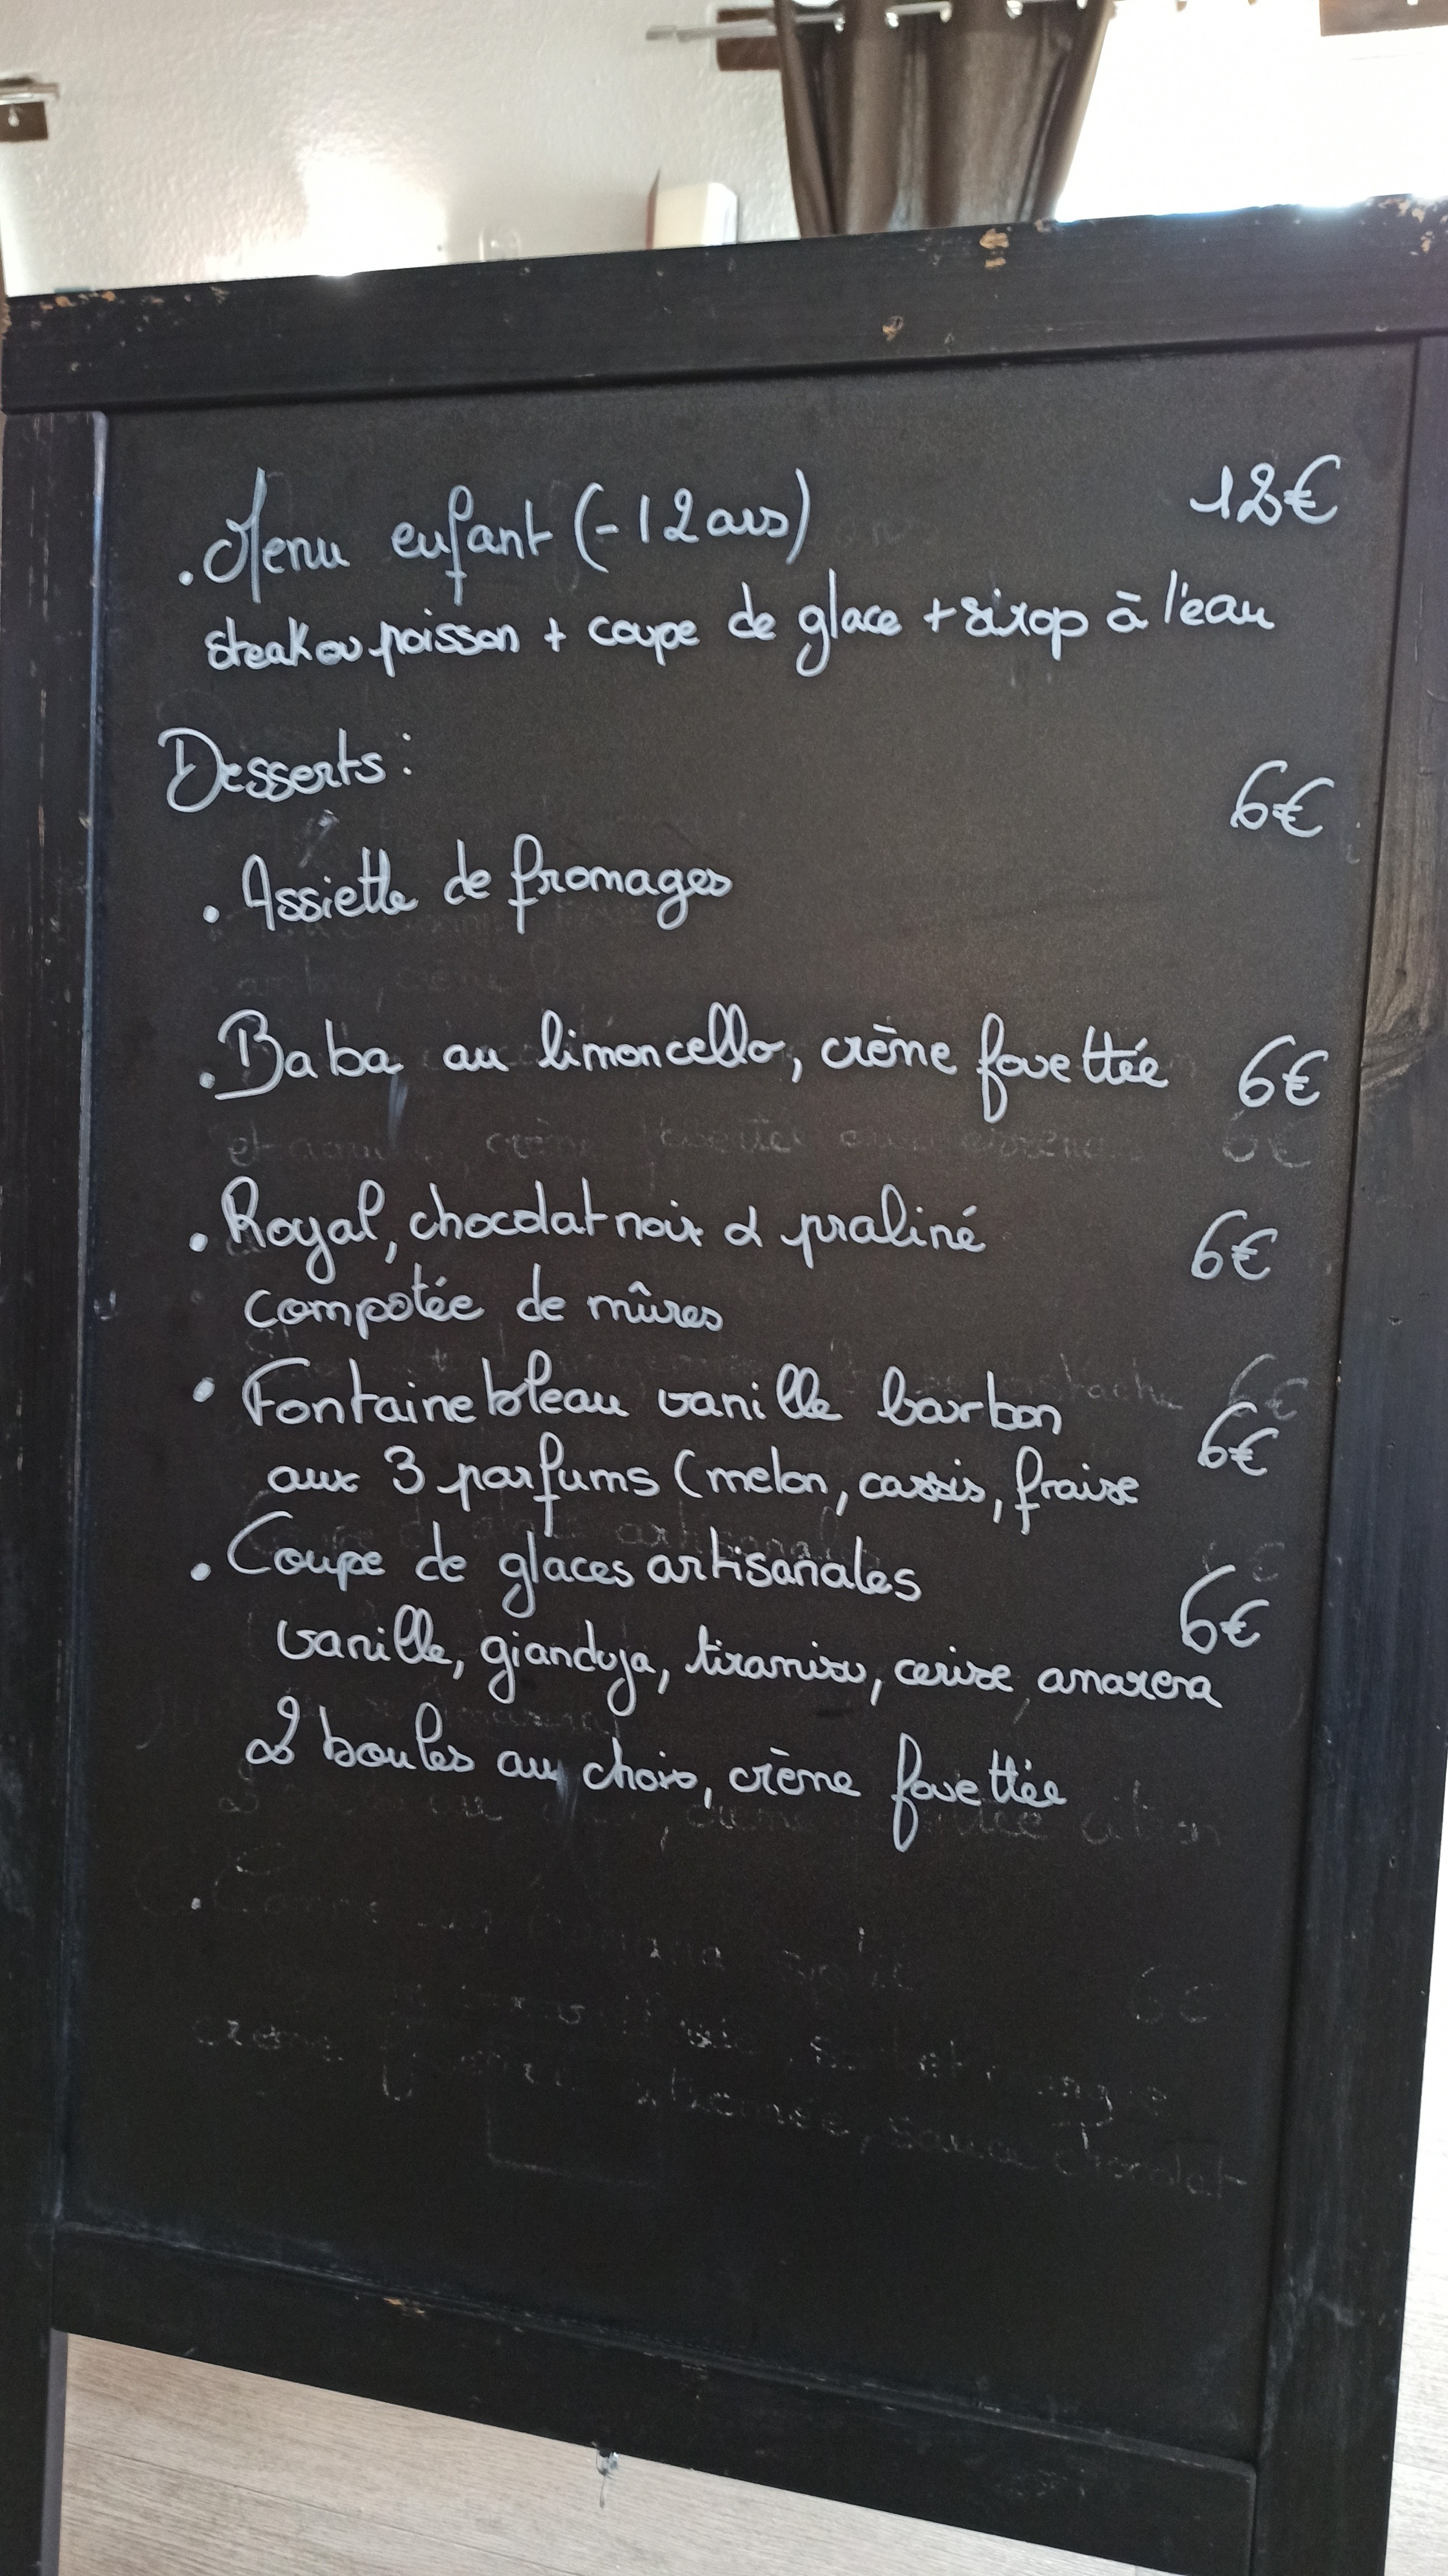 . Menu enfant (-12 ans) 12€
steak ou poisson + coupe de glace + sirop à l'eau
Desserts :
6€
. Assiette de fromages
. Baba au limoncello, crème fouettée 6€
. Royal, chocolat noir & praliné 6€
compotée de mûres
. Fontainebleau vanille barbon 6€
aux 3 parfums (melon, cassis, fraise
. Coupe de glaces artisanales 6€
vanille, gianduja, tiramisu, cerise amarena
2 boules au choix, crème fouettée